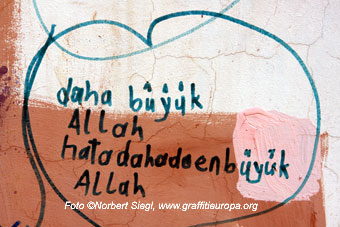 daha büyük
Allah
hatadahadaenbüyük
Allah
Foto ©Norbert Siegl, www.graffitieuropa.org